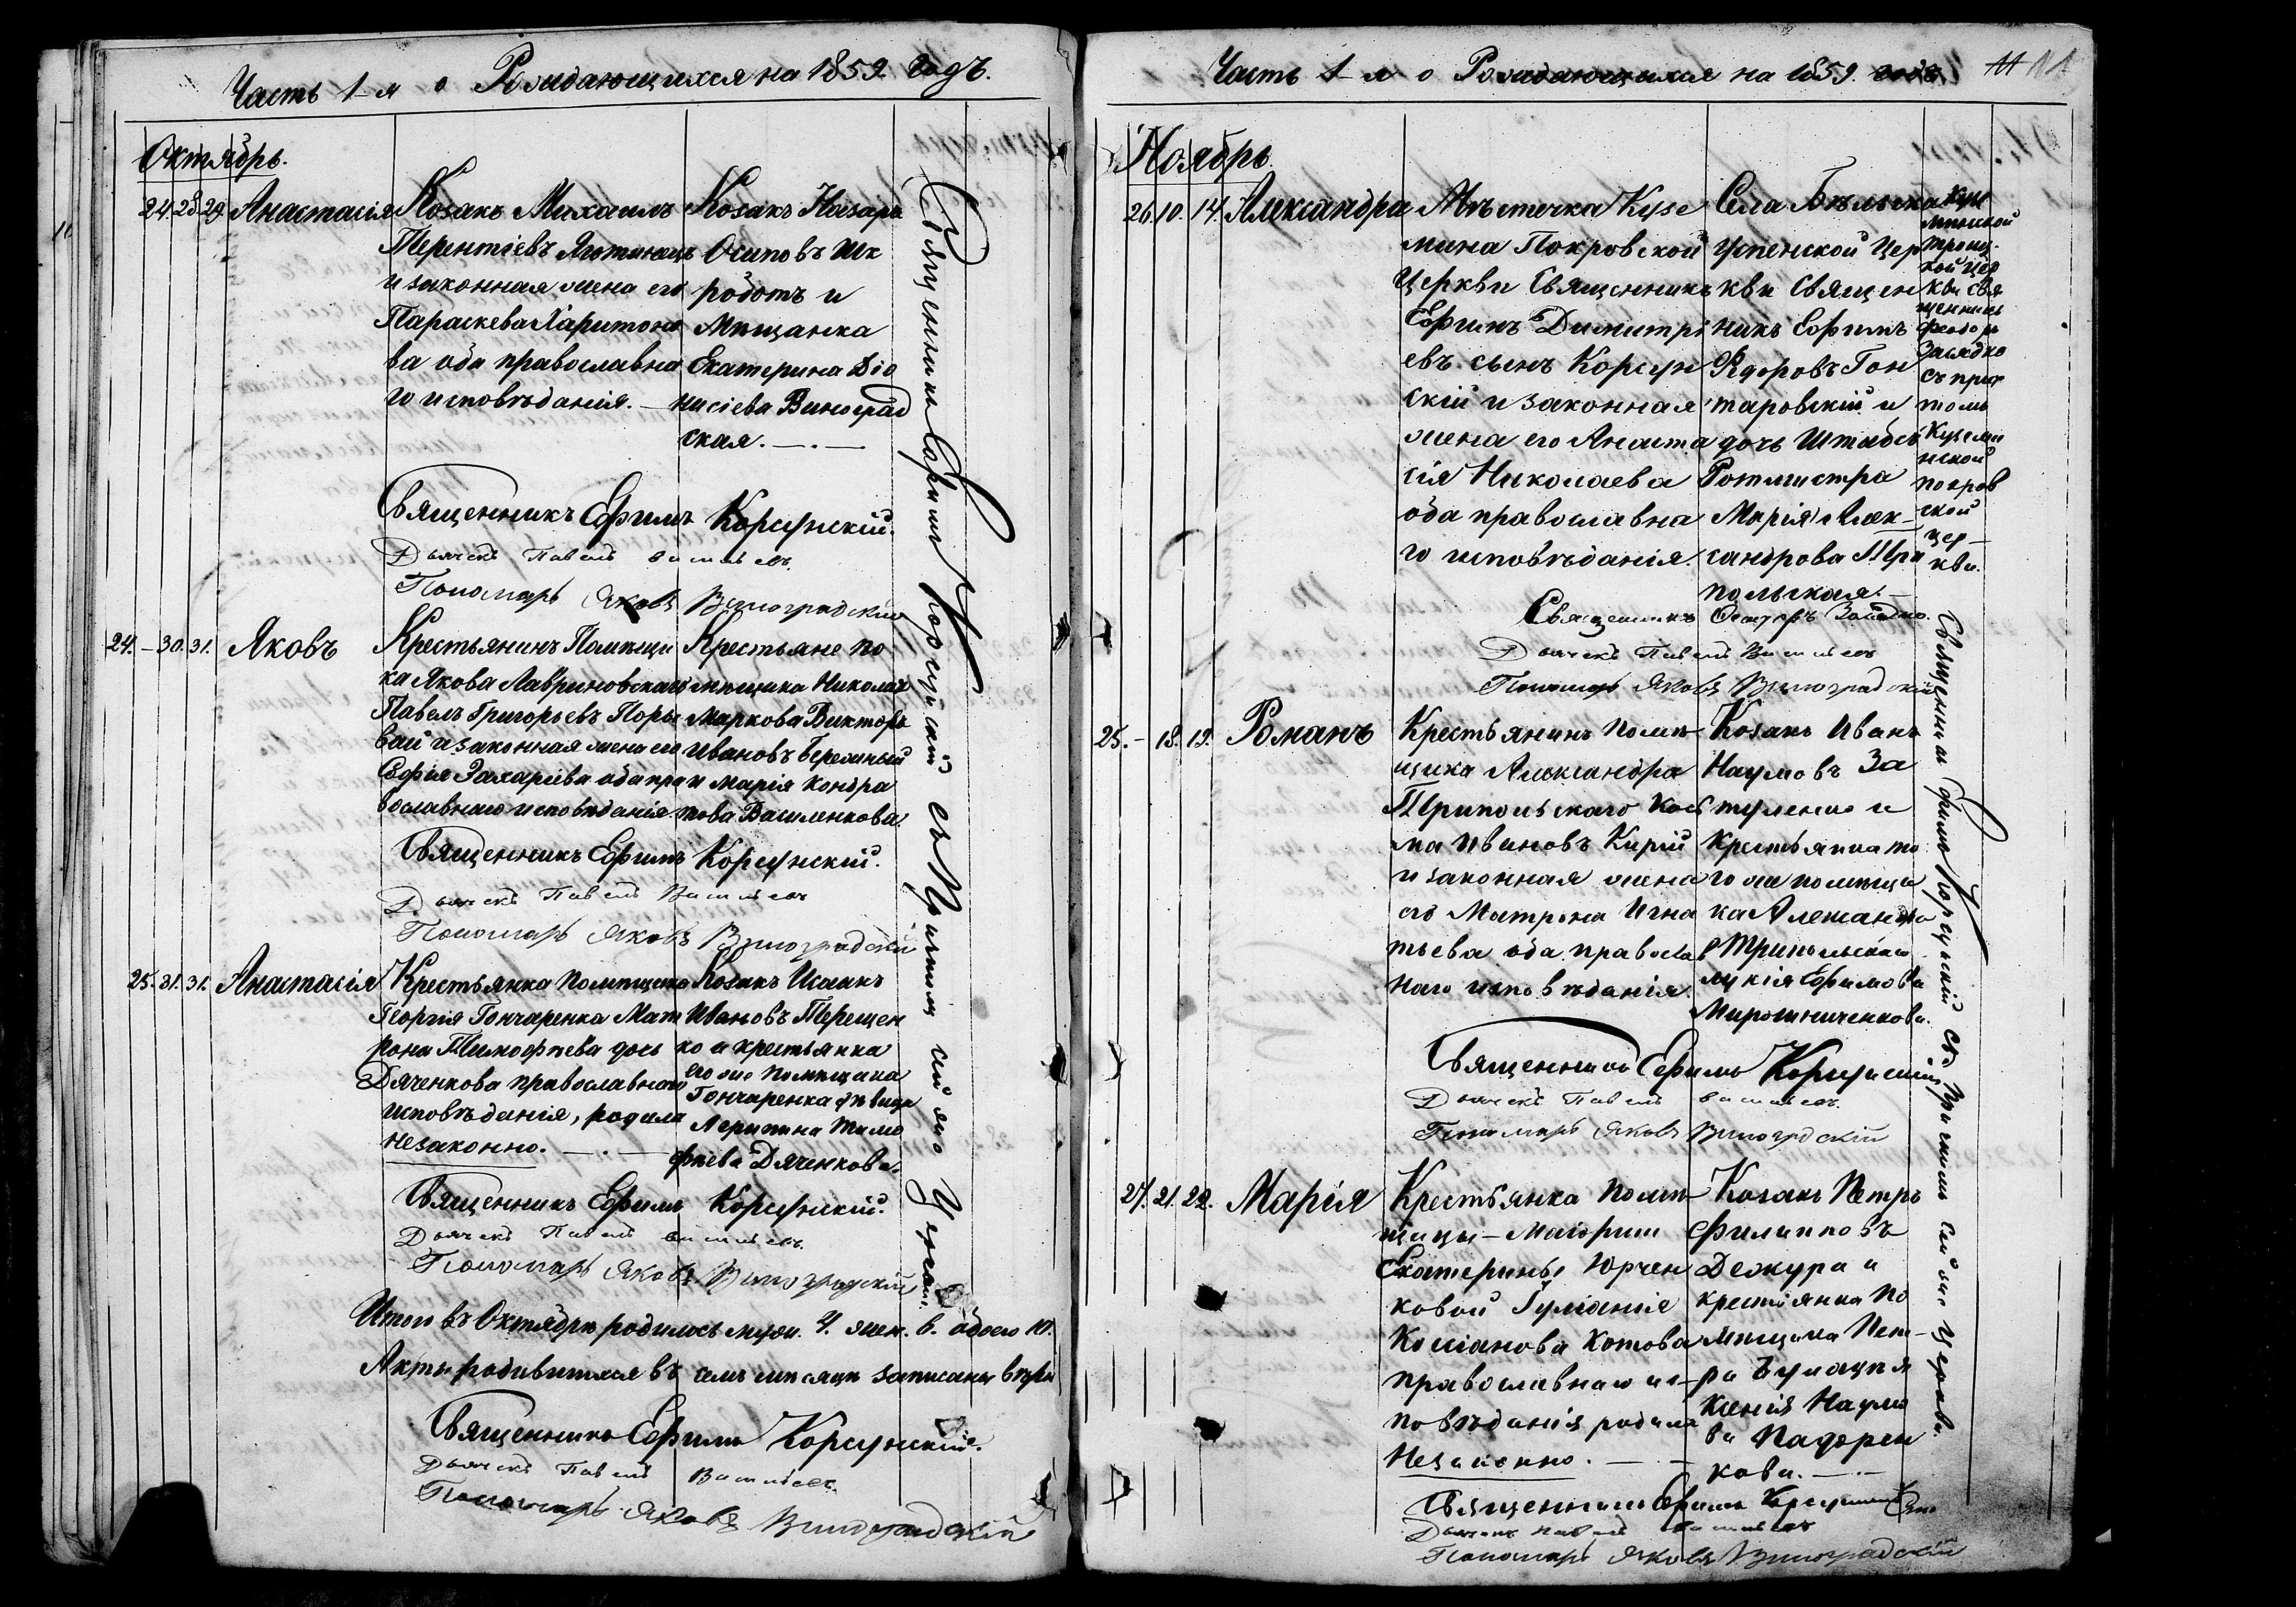 Часть 1-я о Рождающихся на 1859. годъ.
Октябрь.
24. 28. 29. Анастасія
Козакъ Михаилъ
Терентіевъ Яготинецъ
и законная жена его
Параскева Харитоно
ва оба православна
го исповѣданія. —
Козакъ Назаръ
Осиповъ Шк
роботъ и
Мѣщанка
Екатерина Діо
нисіева Виноград
ская. —.—
Священникъ Ефимъ Корсунскій.
Дьячекъ Павелъ
Пономарь Яковъ Виноградскій
24. — 30. 31. Яковъ
Крестьянинъ Помѣщи
ка Якова Лавриновскаго
Павелъ Григорьевъ
и законная жена его
Софія Захаріева оба пра
вославнаго исповѣданія.
Крестьяне по
мѣщика Николая
Маркова Викторъ
Ивановъ
и Марія Кондра
това Василенкова.
Священникъ Ефимъ Корсунскій.
Дьячекъ Павелъ
Пономарь Яковъ Виноградскій
25. 31. 31. Анастасія
Крестьянка Помѣщика
Георгія Гончаренка Мат
рона Тимофѣева дочь
Дяченкова православнаго
исповѣданія, родила
незаконно. —.—
Козакъ Исаакъ
Ивановъ Терещен
ко и крестьянка
его же Помѣщика
Гончаренка дѣвица
Агрипина Тимо
фѣева Дяченкова.
Священникъ Ефимъ Корсунскій.
Дьячекъ Павелъ
Пономарь Яковъ Виноградскій
Итого въ Октябрѣ родилось муж. 4. жен. 6. обоего 10.
Акты родившихся въ семъ мѣсяцѣ записаны вѣрно
Священникъ Ефимъ Корсунскій.
Дьячекъ Павелъ
Пономарь Яковъ Виноградскій
Священникъ Ефимъ Корсунскій съ Причтомъ сей же Церкви.
Часть 1-я о Рождающихся на 1859. годъ 11
Ноябрь
26. 10. 14. Александра
Мѣстечка Кузе
мина Покровской
Церкви Священникъ
Ефимъ Димитрі
евъ сынъ Корсун
скій и законная
жена его Анаста
сія Николаева
оба православна
го исповѣданія.
Села Бѣльска
Успенской Цер
кви Священ
никъ Ефимъ
Федоровъ Гон
таровскій и
дочь Штабсъ
Ротмистра
Марія Алек—
сандрова Три
польская.—
Кузе
минской
Троиц.
кой Цер
кви Свя
щенникъ
Феодоръ
Засядко
съ прич
томъ
Куземи
нской
покров
ской
цер—
кви.
Священникъ Феодоръ Засядко.
Дьячекъ Павелъ
Пономарь Яковъ Виноградскій
25. — 18. 19. Романъ
Крестьянинъ Помѣ—
щика Александра
Трипольскаго Кось
ма Ивановъ Кирій
и законная жена
его Матрона Игна
тьева оба правосла
наго исповѣданія.
Козакъ Иванъ
Наумовъ За
и
Крестьянка то
го же помѣщи
ка Александра
Трипольскаго
Ефимова
Мирошниченкова.
Священникъ Ефимъ Корсунскій
Дьячекъ Павелъ
Пономарь Яковъ Виноградскій
27. 21. 22. Марія
Крестьянка Помѣ—
щицы — Маіорши
Екатерины Юрчен
ковой Іуліанія
Косіанова Котова
православнаго ис—
повѣданія родила
Незаконно. —.—
Козакъ Петръ
Филипповъ
Дежура и
крестьянка По
мѣщика Пет—
ра
Ксенія Наумо
ва Падорен
кова. —.—
Священникъ Ефимъ Корсунскій
Дьячекъ Павелъ
Пономарь Яковъ Виноградскій
Священникъ Ефимъ Корсунскій съ Причтомъ сей же церкви.